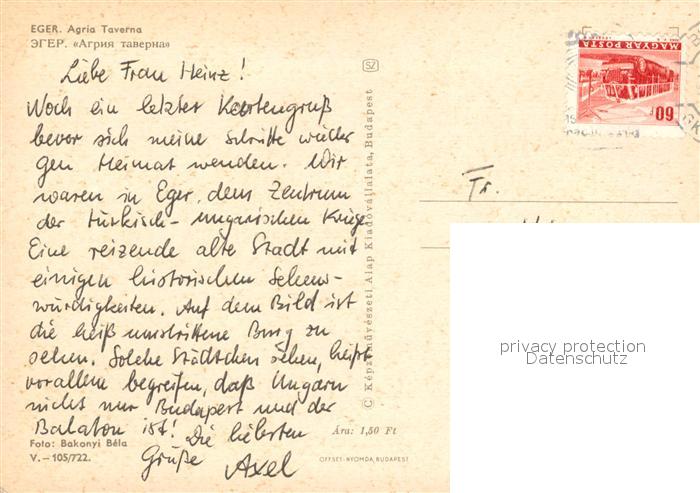 EGER. Agria Taverna
ЭГЕР. «Агрия таверна»
Liebe Frau Heinz!
Noch ein letzter Kartengruß
bevor sich meine Schritte wieder
gen Heimat wenden. Wir
waren in Eger, dem Zentrum
der türkisch-ungarischen Kriege.
Eine reizende alte Stadt mit
einigen historischen Sehens-
würdigkeiten. Auf dem Bild ist
die heiß umstrittene Burg zu
sehen. Solche Städtchen sehen, heißt
vor allem begreifen, daß Ungarn
nicht nur Budapest und der
Balaton ist! Die liebsten
Grüße Axel
Foto: Bakonyi Béla
V.—105/722.
Ára: 1,50 Ft
OFFSET-NYOMDA, BUDAPEST
C Képzőművészeti Alap Kiadóvállalata, Budapest
SZ
MAGYAR POSTA
60f
Fr.
privacy protection
Datenschutz